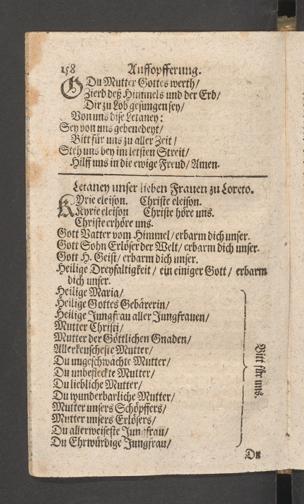 158 Auffopfferung.
O Du Mutter Gottes werth/
Zierd deß Himmels und der Erd/
Dir zu Lob gesungen sey/
Von uns dise Letaney:
Sey von uns gebenedeyt/
Bitt für uns zu aller Zeit/
Steh uns bey im letsten Streit/
Hilff uns in die ewige Freud/ Amen.
Letaney unser lieben Frauen zu Loreto.
KYrie eleison. Christe eleison.
Kyrie eleison Christe höre uns.
Christe erhöre uns.
Gott Vatter vom Himmel/ erbarm dich unser.
Gott Sohn Erlöser der Welt/ erbarm dich unser.
Gott H. Geist/ erbarm dich unser.
Heilige Dreyfaltigkeit/ ein einiger Gott/ erbarm
dich unser.
Heilige Maria/
Heilige Gottes Gebärerin/
Heilige Jungfrau aller Jungfrauen/
Mutter Christi/
Mutter der Göttlichen Gnaden/
Allerkeuscheste Mutter/
Du ungeschwächte Mutter/
Du unbefleckte Mutter/
Du liebliche Mutter/
Du wunderbarliche Mutter/
Mutter unsers Schöpffers/
Mutter unsers Erlösers/
Du allerweiseste Jungfrau/
Du Ehrwürdige Jungfrau/
Bitt für uns.
Du